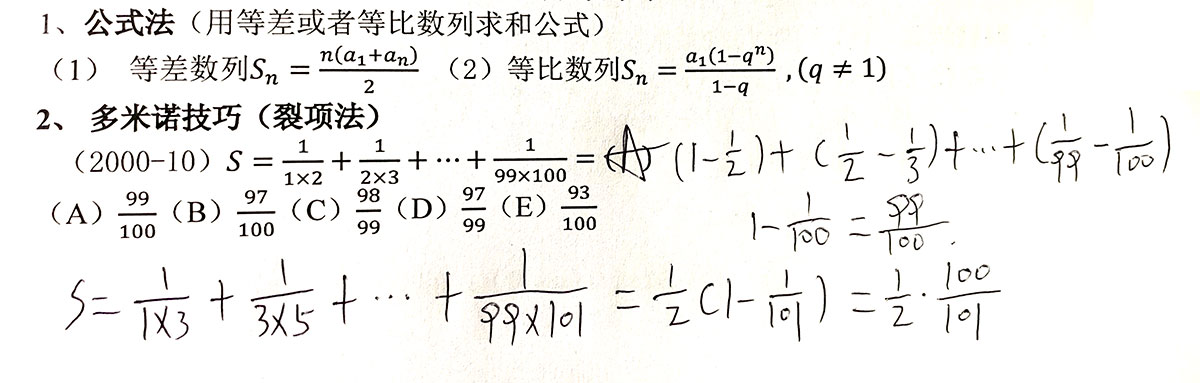 1、公式法（用等差或者等比数列求和公式）
（1） 等差数列Sₙ = n(a₁+aₙ)/2 （2）等比数列Sₙ = a₁(1−qⁿ)/(1−q) , (q ≠ 1)
2、 多米诺技巧（裂项法）
（2000-10）S = 1/(1×2) + 1/(2×3) + ⋯ + 1/(99×100) = (A) (1-1/2)+(1/2-1/3)+⋯+(1/99-1/100)
（A）99/100（B）97/100（C）98/99（D）97/99（E）93/100
1-1/100=99/100.
S=1/(1×3)+1/(3×5)+⋯+1/(99×101)=1/2(1-1/101)=1/2·100/101